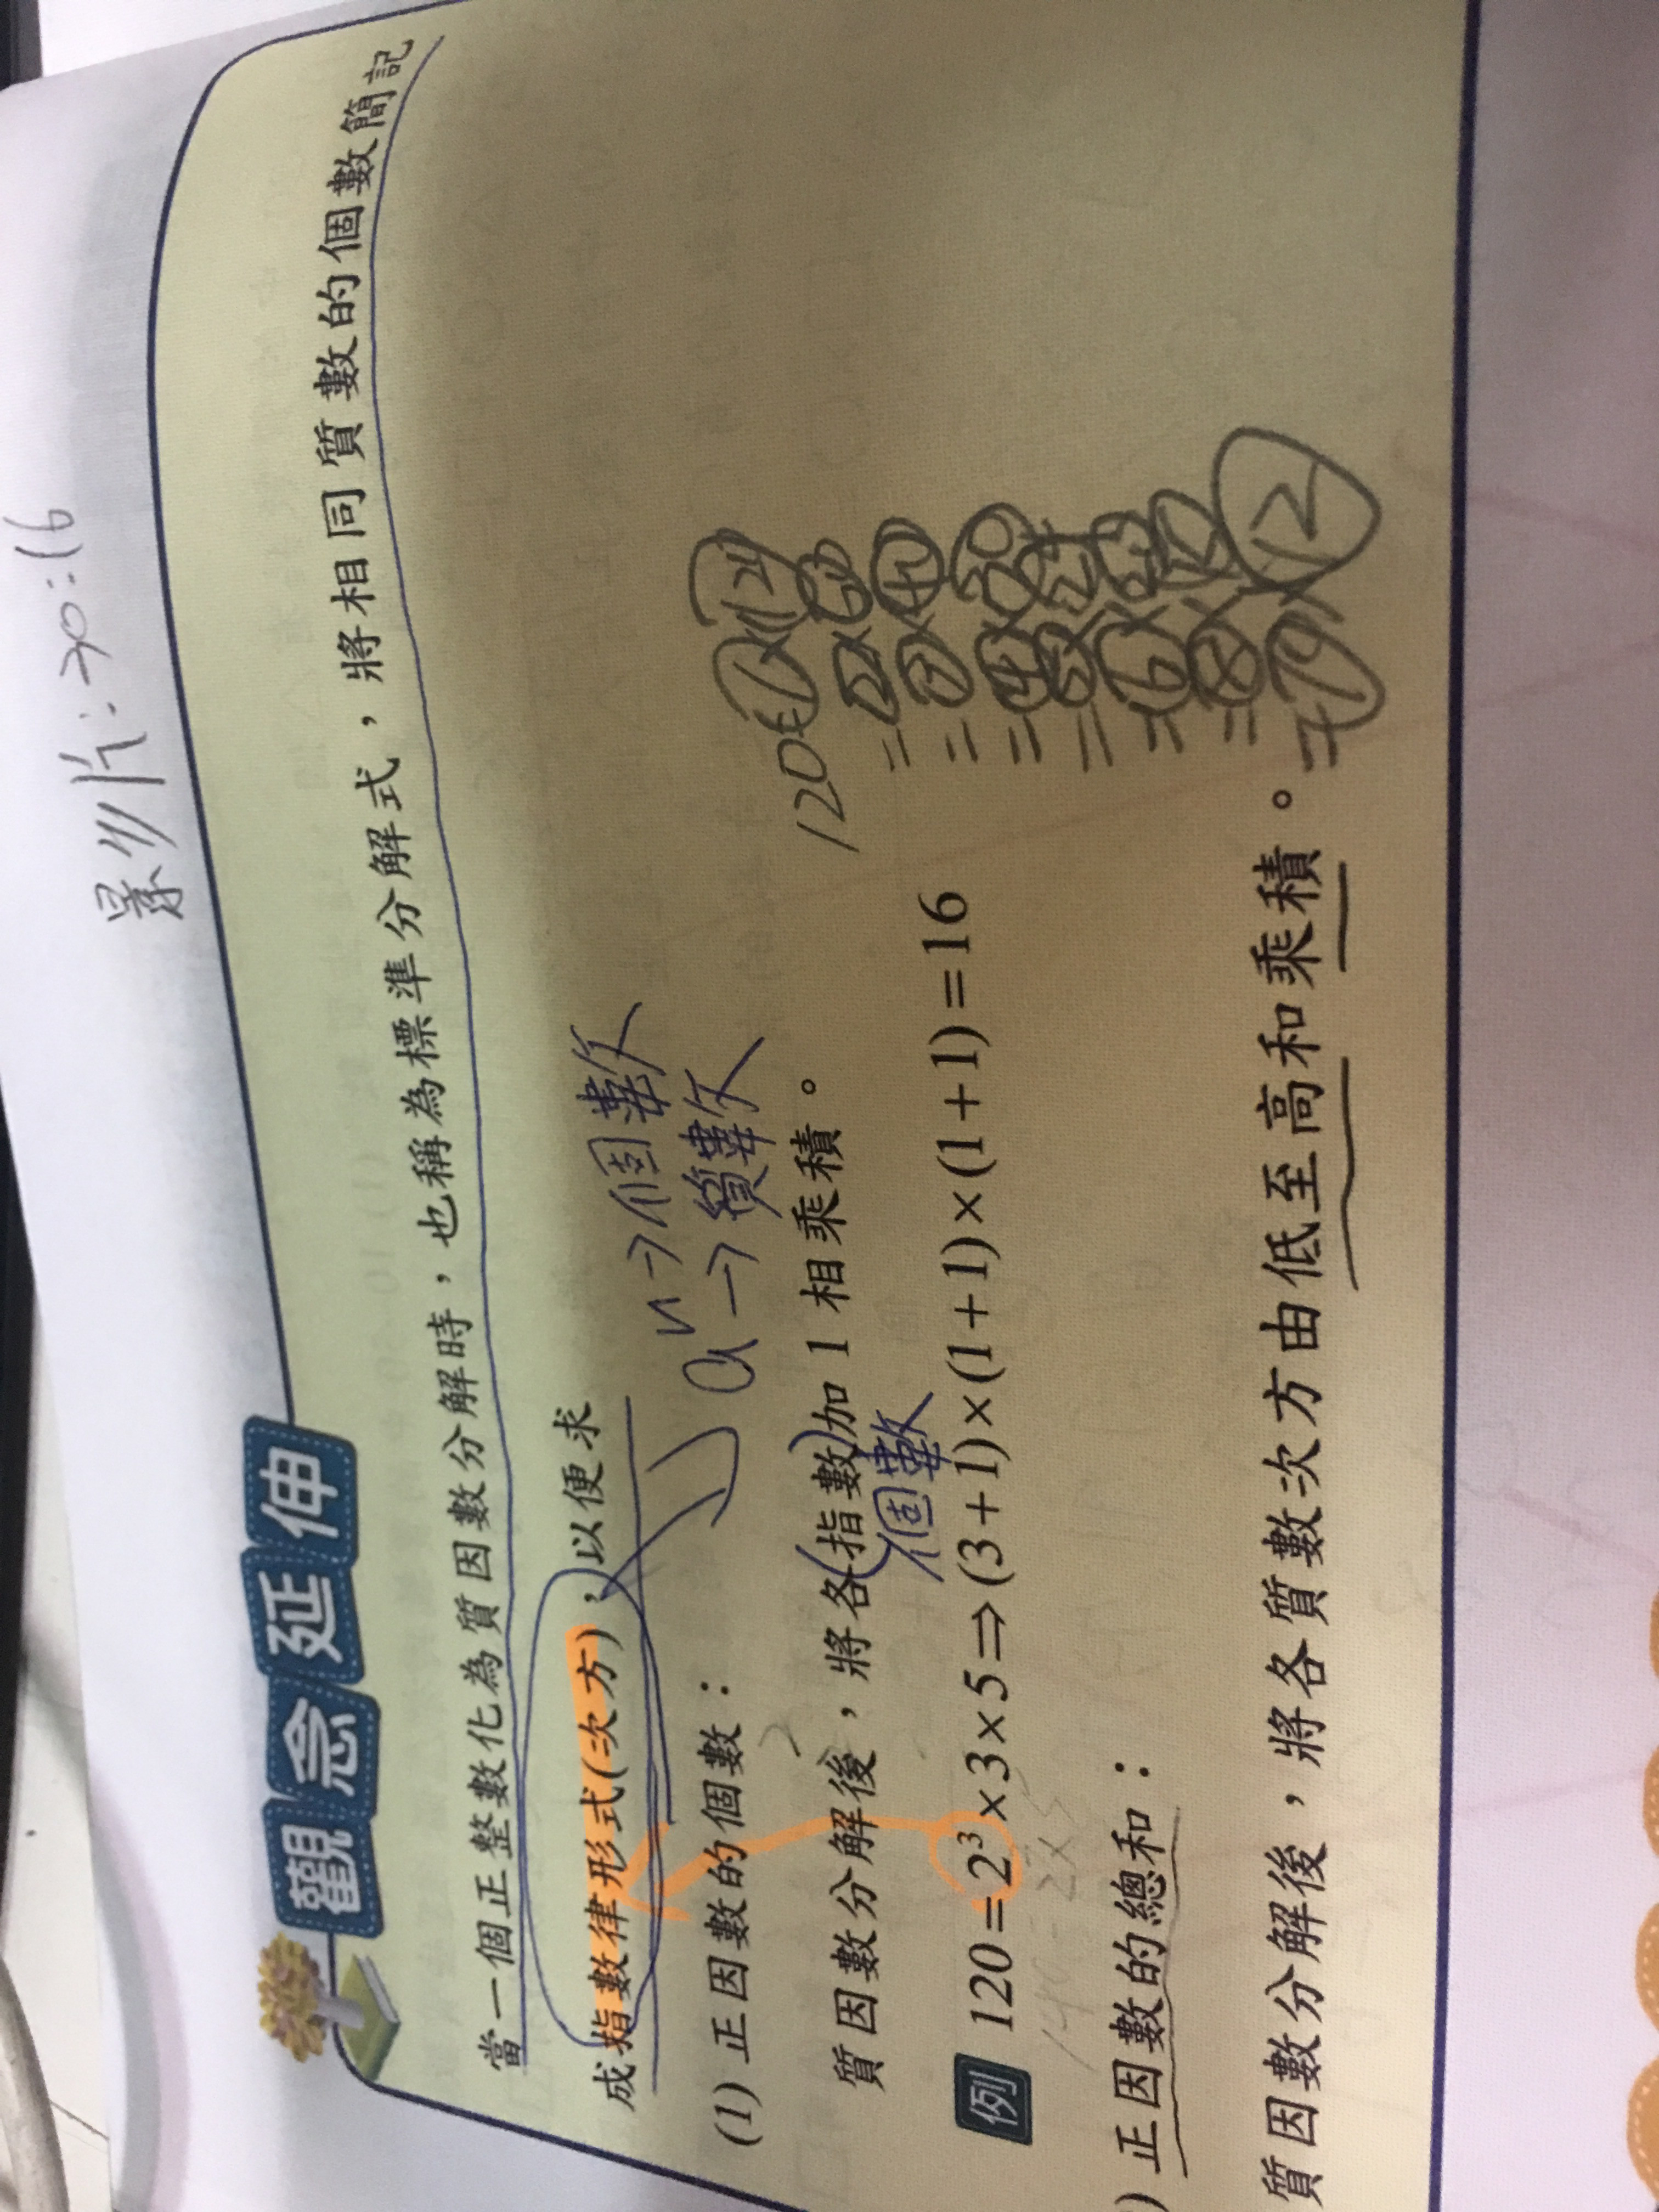 影片:30:16
觀念延伸
當一個正整數化為質因數分解時，也稱為標準分解式，將相同質數的個數簡記
成指數律形式(次方)，以便求
aⁿ→個數
→質數
(1) 正因數的個數：
質因數分解後，將各(指數)加 1 相乘積。
個數
例 120=2³×3×5⇒(3+1)×(1+1)×(1+1)=16
120=1×120
=2×60
=3×40
=4×30
=5×24
=6×20
=8×15
=10×12
) 正因數的總和：
質因數分解後，將各質數次方由低至高和乘積。